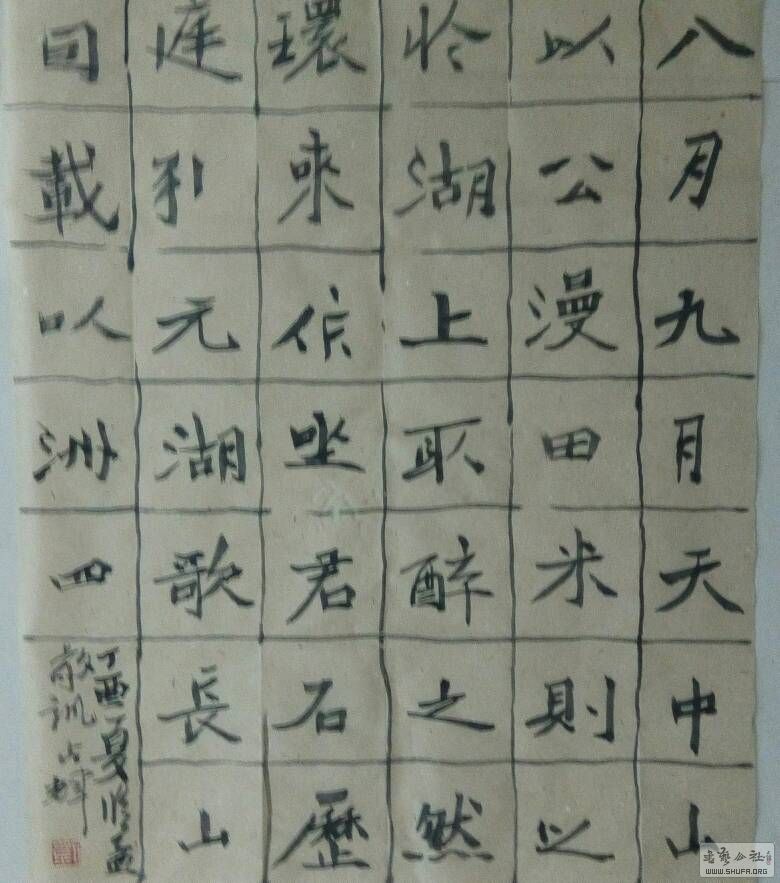 八月九月天中山
以公漫田米則以
怜湖上取醉之然
環來坐君石歷
庭引元湖歌長山
回載以洲四
丁酉夏临孟
敬訓占輝
書藝公社
WWW.SHUFA.ORG